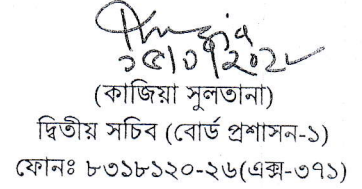 (কাজিয়া সুলতানা)
দ্বিতীয় সচিব (বোর্ড প্রশাসন-১)
ফোনঃ ৮৩১৮১২০-২৬(এক্স-৩৭১)